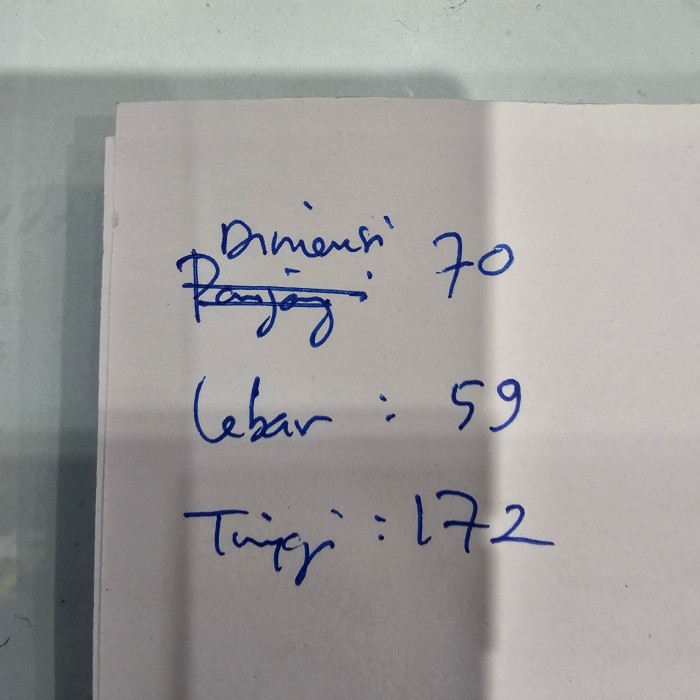 Dimensi 70
Panjang
Lebar : 59
Tinggi : 172